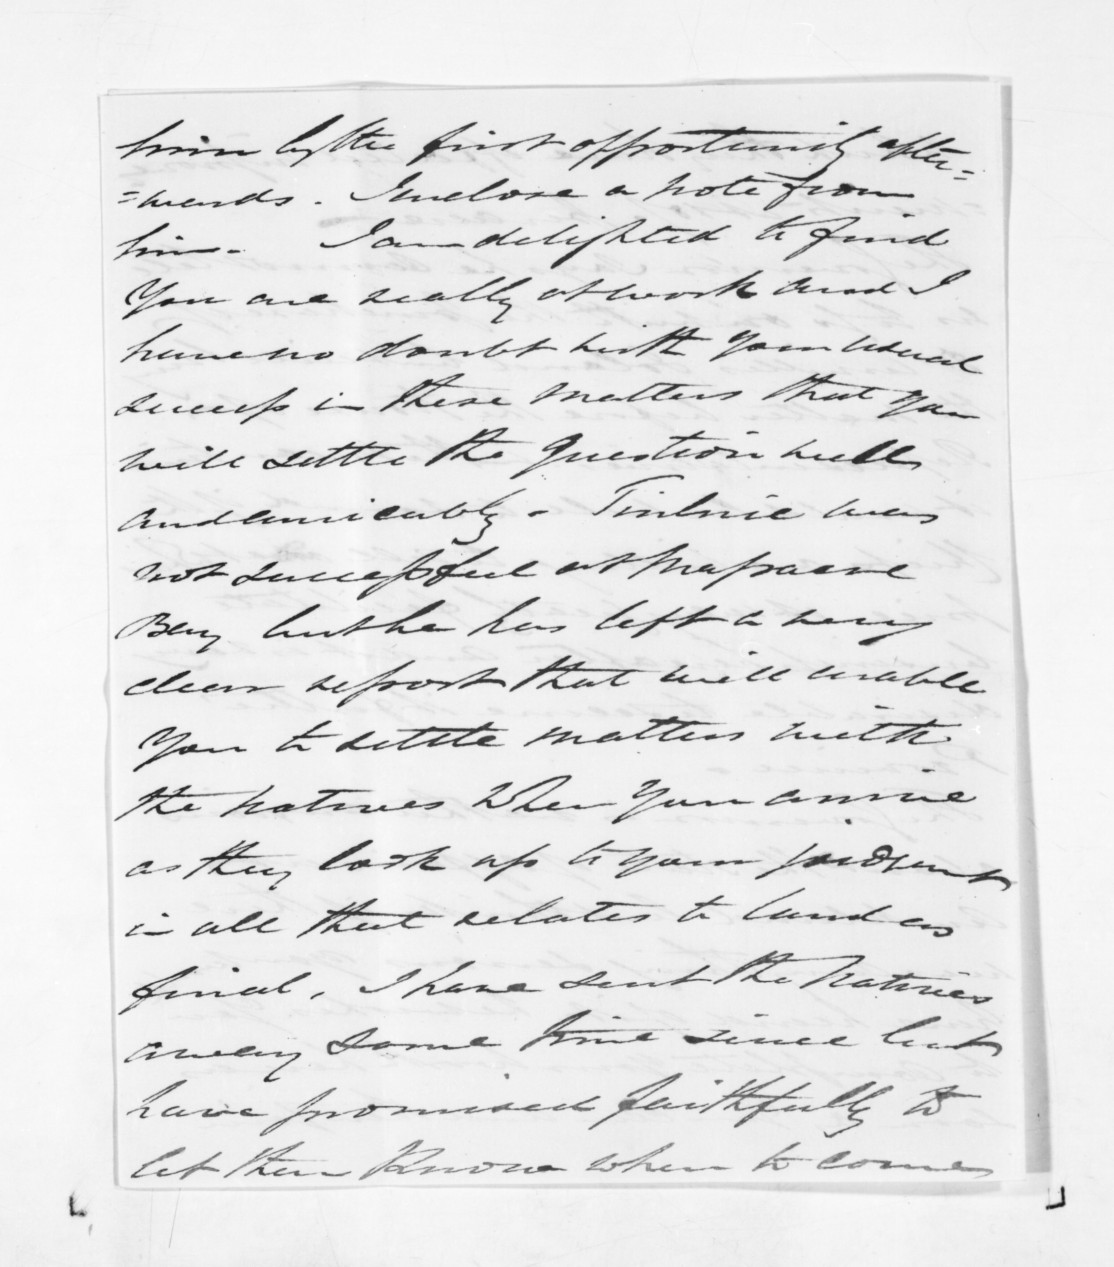 him by the first opportunity after=
=wards. I inclose a note from
him. I am delighted to find
You are really at work and I
have no doubt with your usual
success in these matters that you
will settle the question well
and amicably. was
not successful at Massacre
Bay but he has left a very
clear report that will enable
you to settle matters with
the natives when you arrive
as they look up to your judgment
in all that relates to land as
final. I have sent the Natives
away some time since but
have promised faithfully to
let them Know when to come